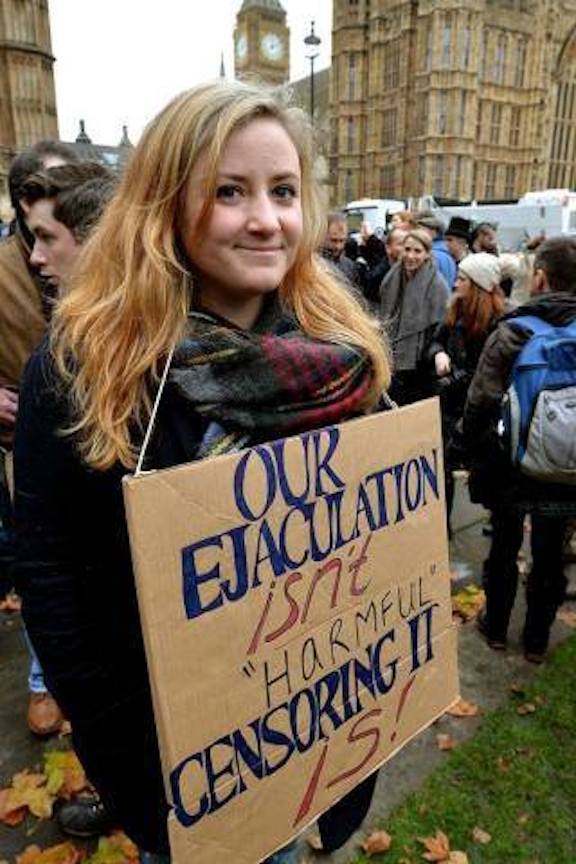 OUR
EJACULATION
isn't
"HARMFUL"
CENSORING IT
IS!